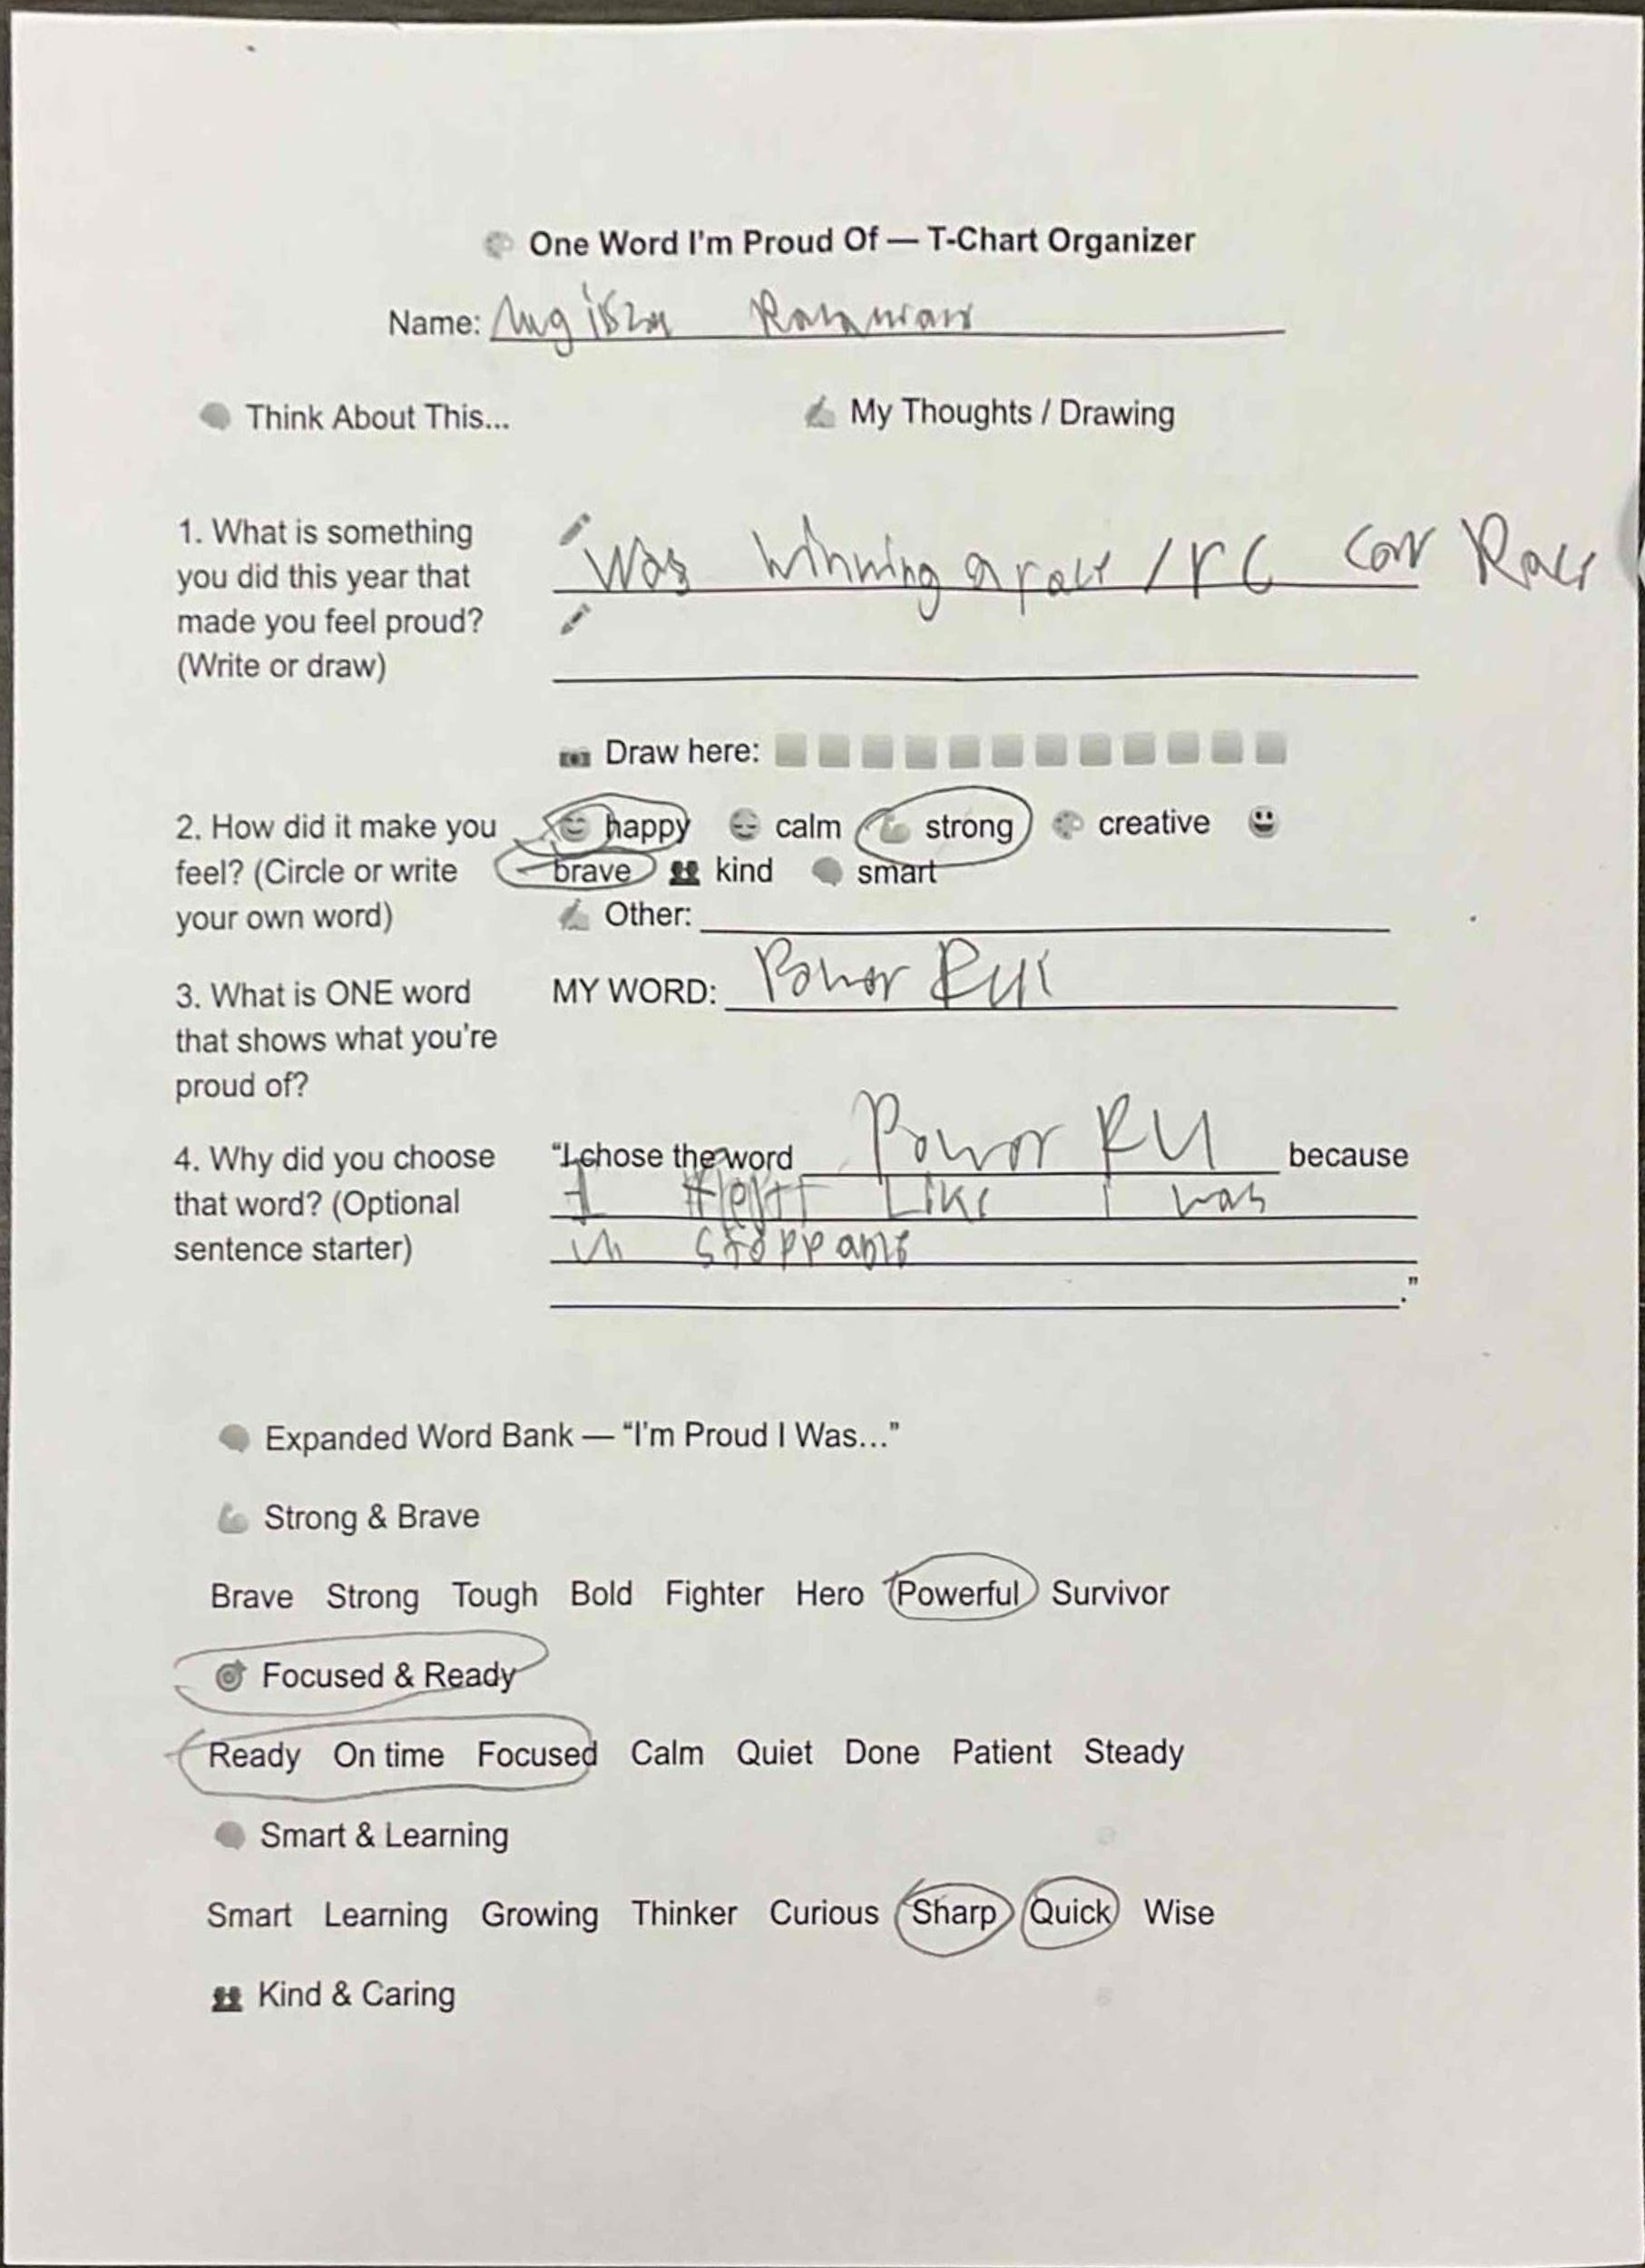 One Word I'm Proud Of — T-Chart Organizer
Name:
Think About This...
My Thoughts / Drawing
1. What is something
you did this year that
made you feel proud?
(Write or draw)
Was winning a race / rc car Race
Draw here:
2. How did it make you
feel? (Circle or write
your own word)
happy calm strong creative
brave kind smart
Other:
3. What is ONE word
that shows what you're
proud of?
MY WORD: Power
4. Why did you choose
that word? (Optional
sentence starter)
“I chose the word Power because
I Like I was
un stoppable
.”
Expanded Word Bank — “I'm Proud I Was...”
Strong & Brave
Brave Strong Tough Bold Fighter Hero Powerful Survivor
Focused & Ready
Ready On time Focused Calm Quiet Done Patient Steady
Smart & Learning
Smart Learning Growing Thinker Curious Sharp Quick Wise
Kind & Caring